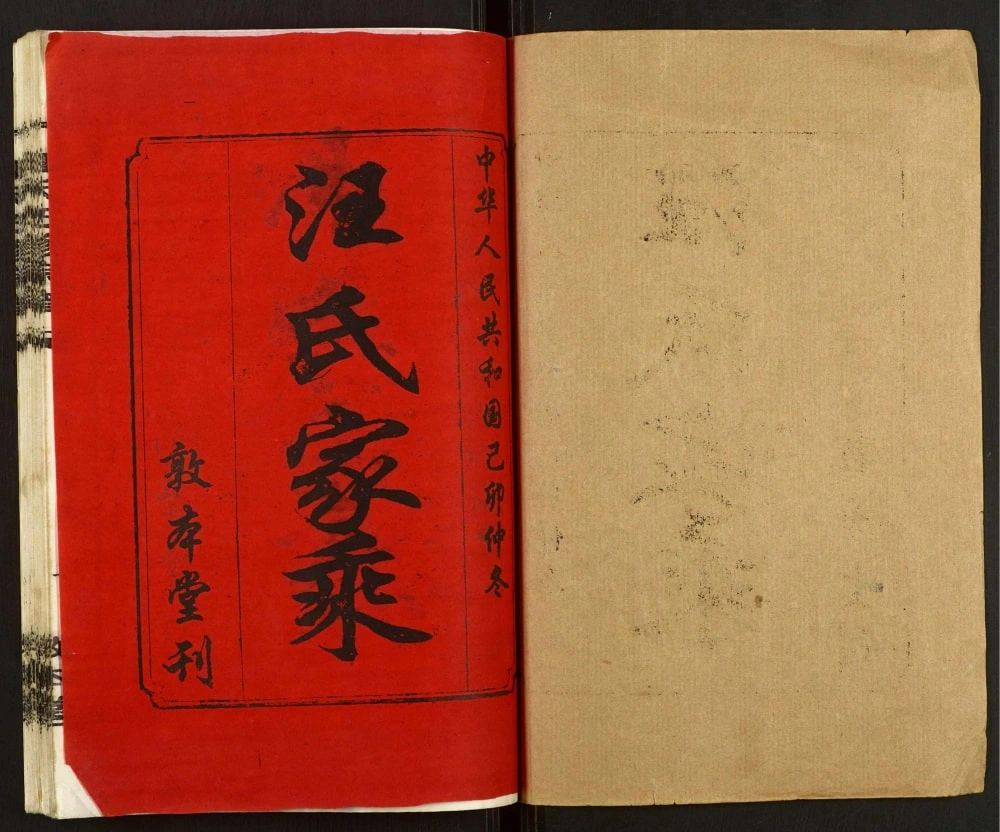 中华人民共和国己卯仲冬
汪氏家乘
敦本堂刊